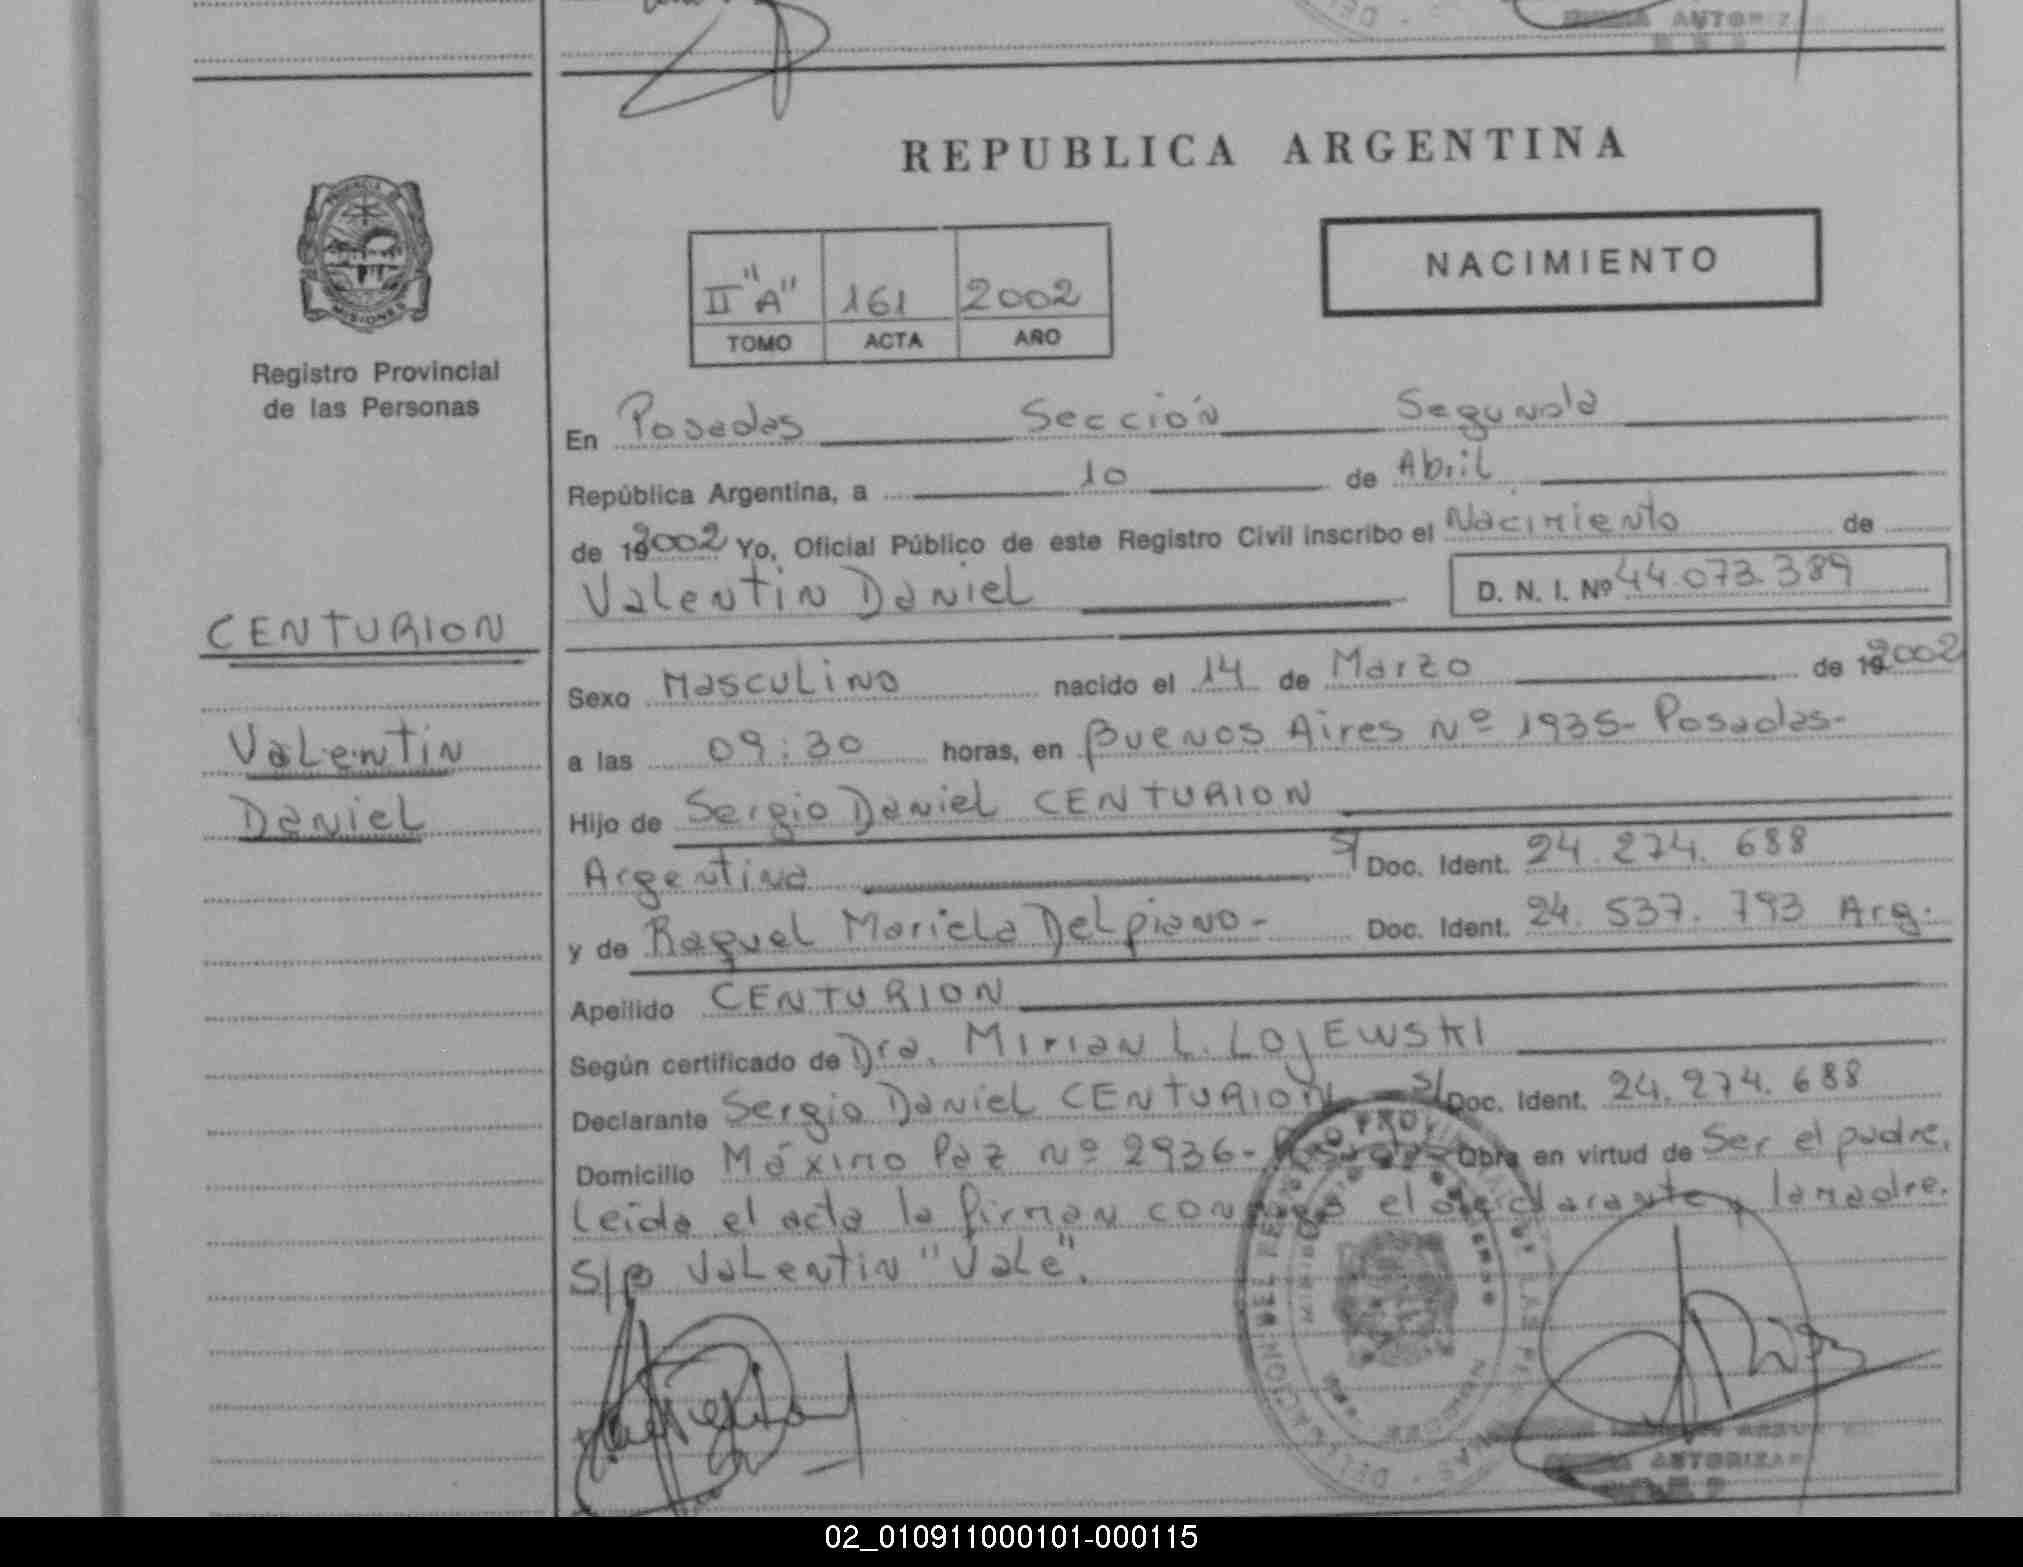 AUTORIZA
REPUBLICA ARGENTINA
PROVINCIA
MISIONES
Registro Provincial
de las Personas
NACIMIENTO
II "A" 161 2002
TOMO ACTA AÑO
En Posadas Sección Segunda
República Argentina, a 10 de Abril
de 192002 Yo, Oficial Público de este Registro Civil inscribo el Nacimiento de
Valentin Daniel D. N. I. Nº 44.073.389
CENTURION
Valentin
Daniel
Sexo Masculino nacido el 14 de Marzo de 192002
a las 09:30 horas, en Buenos Aires Nº 1935- Posadas-
Hijo de Sergio Daniel CENTURION
Argentino S/ Doc. Ident. 24.274.688
y de Raquel Mariela Delpiano- Doc. Ident. 24.537.793 Arg.
Apellido CENTURION
Según certificado de Dra. Mirian L. LOJEWSKI
Declarante Sergio Daniel CENTURION S/ Doc. Ident. 24.274.688
Domicilio Máximo Paz Nº 2936- Posadas Obra en virtud de Ser el padre.
Leida el acta la firman conmigo el declarante y la madre.
S/p Valentin "Vale".
AUTORIZA
02_010911000101-000115